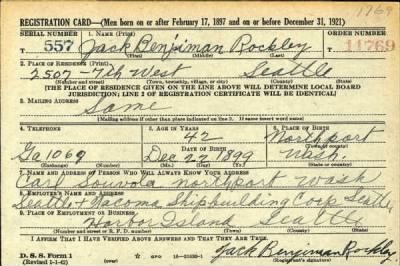 1769
REGISTRATION CARD—(Men born on or after February 17, 1897 and on or before December 31, 1921)
SERIAL NUMBER 1. NAME (Print) ORDER NUMBER
T 557 Jack Benjiman Rockley T 11769
(First) (Middle) (Last)
2. PLACE OF RESIDENCE (Print)
2507-7th West Seattle
(Number and street) (Town, township, village, or city) (County) (State)
[THE PLACE OF RESIDENCE GIVEN ON THE LINE ABOVE WILL DETERMINE LOCAL BOARD
JURISDICTION; LINE 2 OF REGISTRATION CERTIFICATE WILL BE IDENTICAL]
3. MAILING ADDRESS
Same
[Mailing address if other than place indicated on line 2. If same insert word same]
4. TELEPHONE 5. AGE IN YEARS 6. PLACE OF BIRTH
42 Northport
DATE OF BIRTH (Town or county)
Ga 1069 Dec 22 1899 Wash
(Exchange) (Number) (Mo.) (Day) (Yr.) (State or country)
7. NAME AND ADDRESS OF PERSON WHO WILL ALWAYS KNOW YOUR ADDRESS
northport Wash
8. EMPLOYER'S NAME AND ADDRESS
Seattle & Tacoma Shipbuilding Corp Seattle
9. PLACE OF EMPLOYMENT OR BUSINESS
Harbor Island Seattle
(Number and street or R. F. D. number) (Town) (County) (State)
I AFFIRM THAT I HAVE VERIFIED ABOVE ANSWERS AND THAT THEY ARE TRUE.
D. S. S. Form 1 GPO Jack Benjiman Rockley
(Revised 1-1-42) (over)